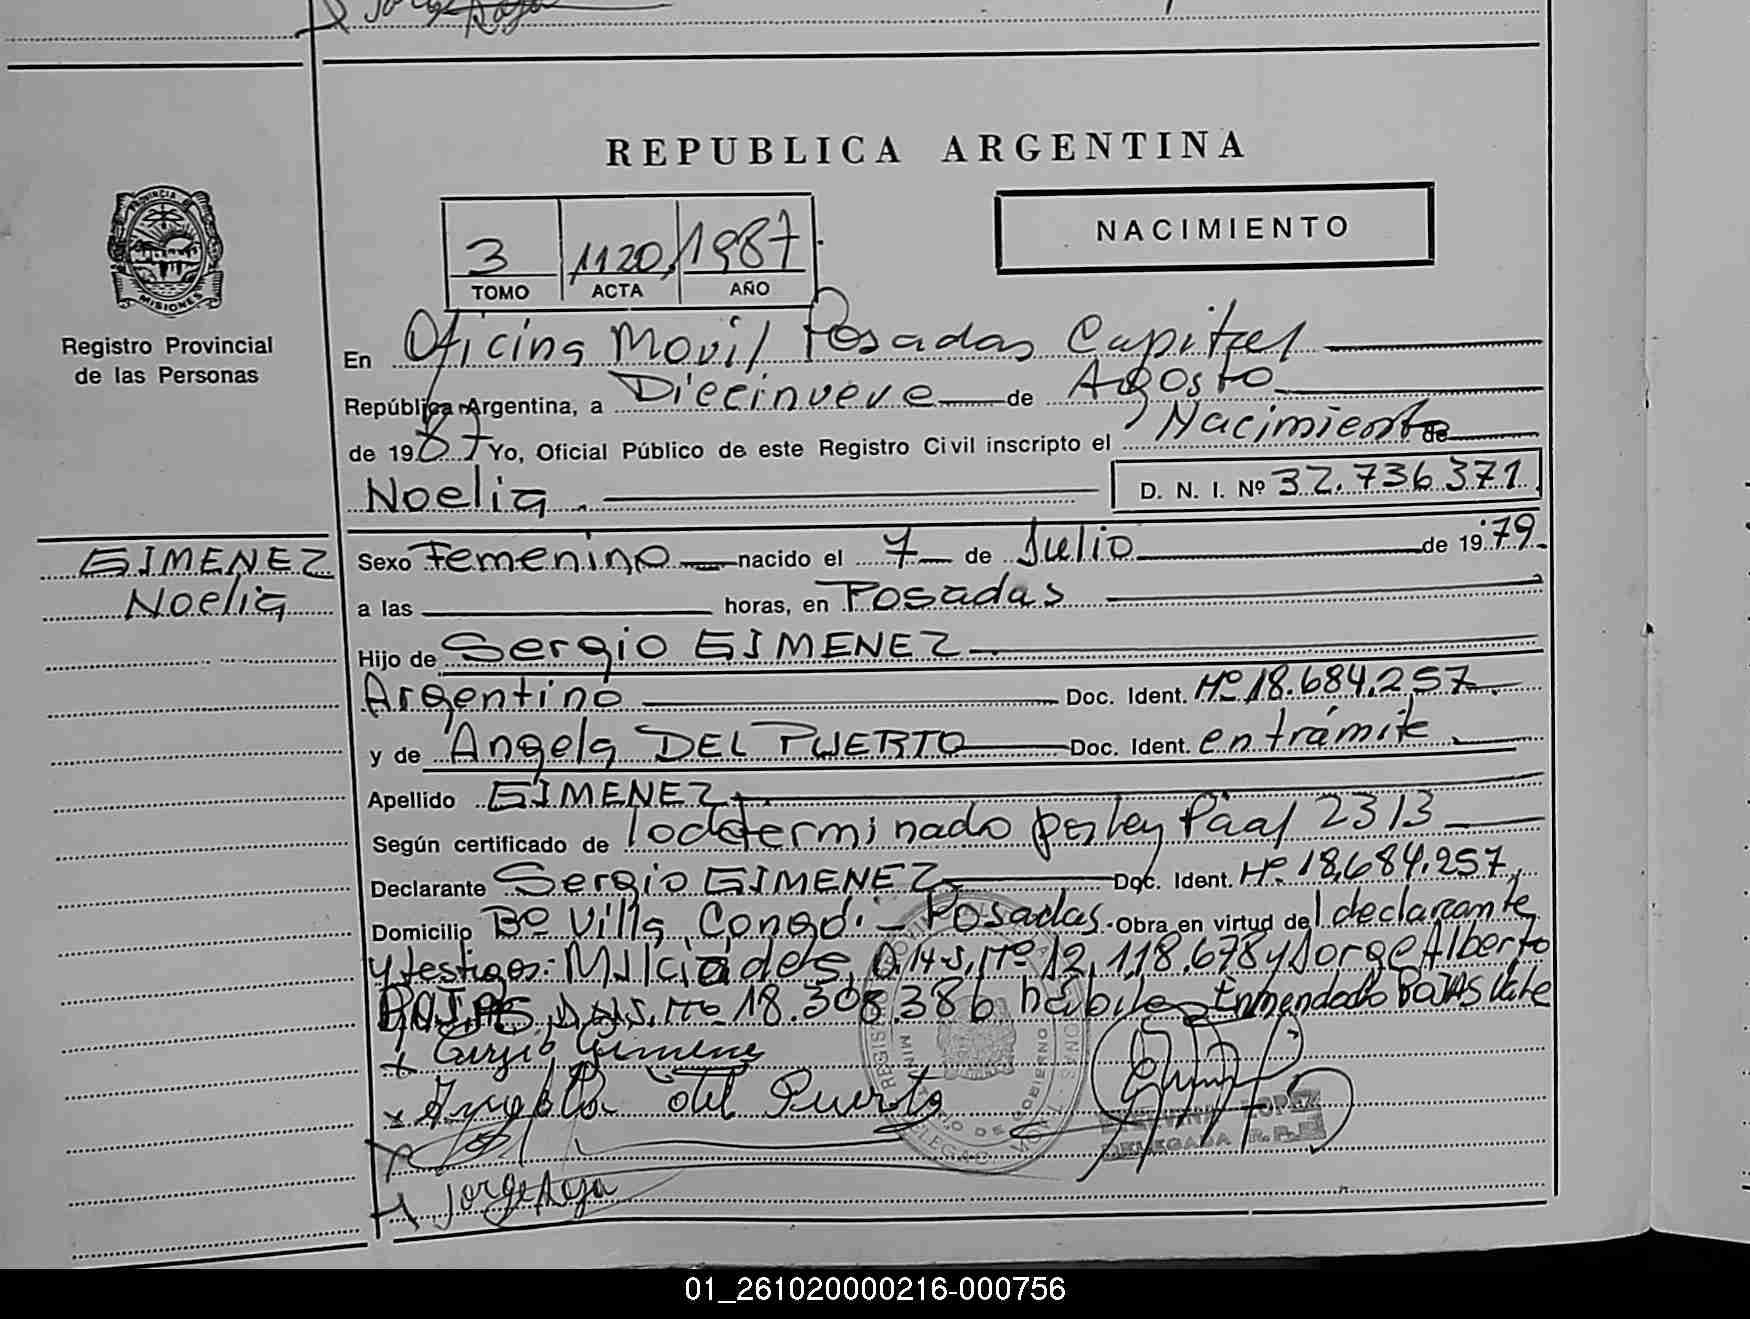 REPUBLICA ARGENTINA
PROVINCIA DE
MISIONES
Registro Provincial
de las Personas
NACIMIENTO
3 1120 1987
TOMO ACTA AÑO
En Oficina Movil Posadas Capital
República Argentina, a Diecinueve de Agosto
de 1987 Yo, Oficial Público de este Registro Civil inscripto el Nacimiento de
Noelia. D. N. I. Nº 32.736.371
GIMENEZ
Noelia
Sexo Femenino nacido el 7 de Julio de 1979
a las horas, en Posadas
Hijo de Sergio GIMENEZ
Argentino Doc. Ident. Nº 18.684.257
y de Angela DEL PUERTO Doc. Ident. en trámite.
Apellido GIMENEZ
Según certificado de lo determinado por ley Pcial 2313
Declarante Sergio GIMENEZ Doc. Ident. Nº 18.684.257
Domicilio Bº Villa Posadas. Obra en virtud del declarante
y testigos: Milciades Nº 12.118.678 y Jorge Alberto
ROJAS D.N.I. Nº 18.308.386 hábiles Enmendado ROJAS Vale
Sergio Gimenez
Angela Del Puerto
LOPEZ
DELEGADA
Jorge Roja
01_261020000216-000756